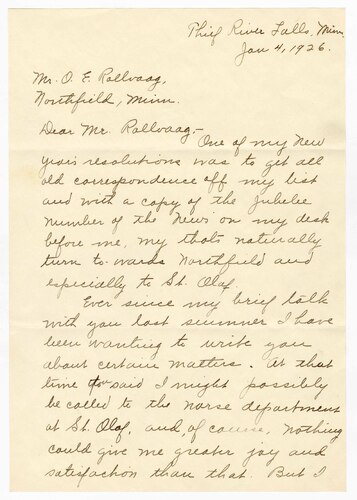 Thief River Falls, Minn.
Jan 4, 1926.
Mr. O. E. Rollvaag,
Northfield, Minn.
Dear Mr. Rollvaag,-
One of my New
years resolutions was to get all
old correspondence off my list
and with a copy of the Jubilee
Number of the News on my desk
before me, my thots naturally
turn to-wards Northfield and
especially to St. Olaf.
Ever since my brief talk
with you last summer I have
been wanting to write you
about certain matters. At that
time you said I might possibly
be called to the norse department
at St. Olaf, and, of course, nothing
could give me greater joy and
satisfaction than that. But I